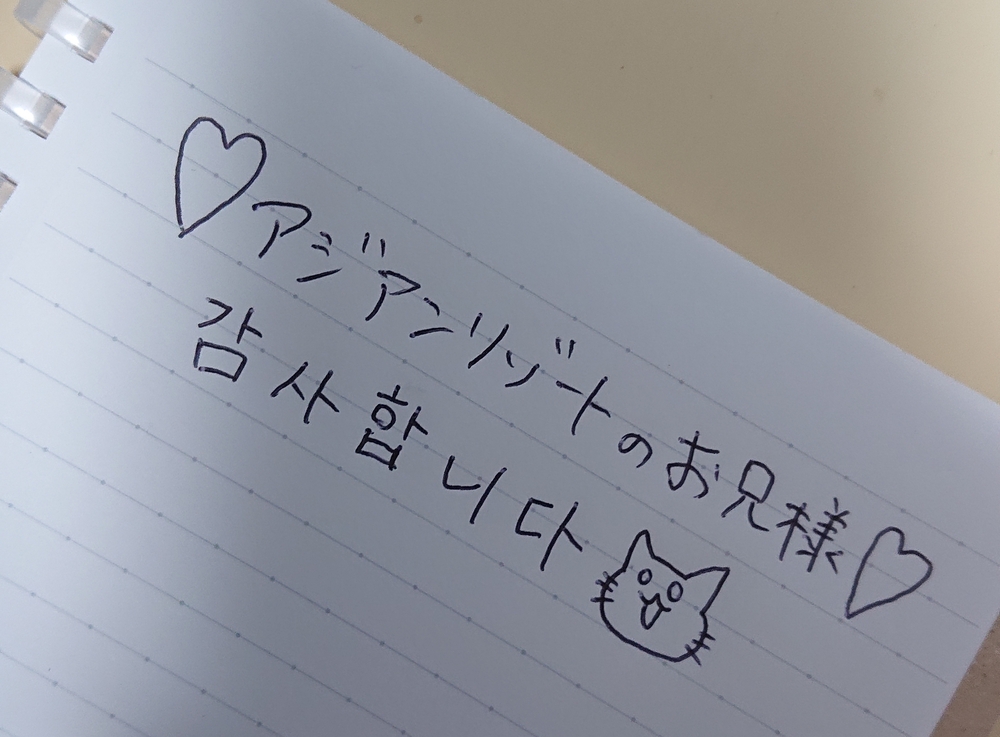 ♡アジアンリゾートのお兄様♡
감사합니다